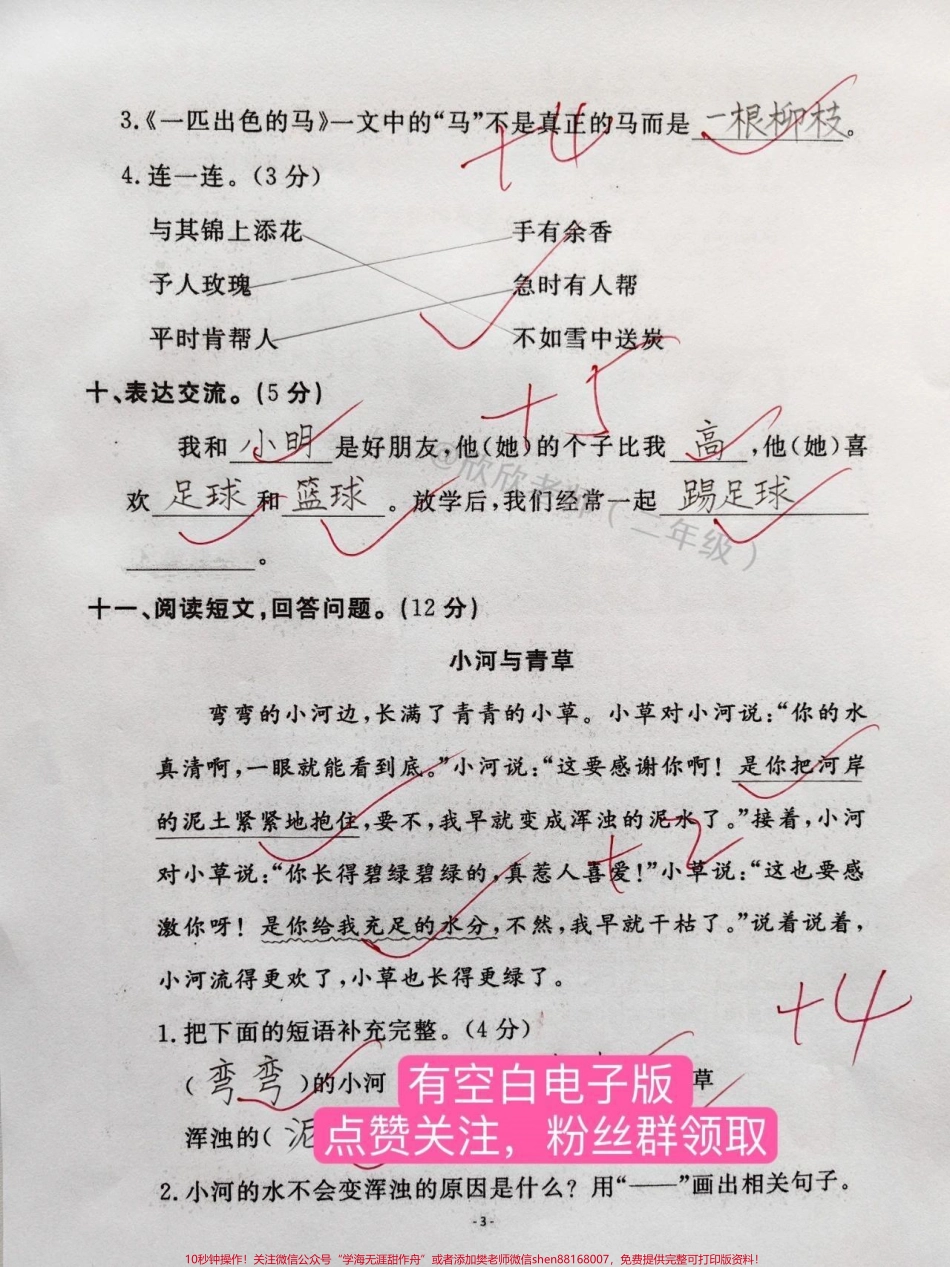 3.《一匹出色的马》一文中的“马”不是真正的马而是 一根柳枝。
+4
4.连一连。(3分)
与其锦上添花 手有余香
予人玫瑰 急时有人帮
平时肯帮人 不如雪中送炭
十、表达交流。(5分)
+5
我和 小明 是好朋友,他(她)的个子比我 高 ,他(她)喜
欢 足球 和 篮球 。放学后,我们经常一起 踢足球
。
@欣欣老师(二年级)
十一、阅读短文,回答问题。(12分)
小河与青草
弯弯的小河边,长满了青青的小草。小草对小河说:“你的水
真清啊,一眼就能看到底。”小河说:“这要感谢你啊!是你把河岸
的泥土紧紧地抱住,要不,我早就变成浑浊的泥水了。”接着,小河
对小草说:“你长得碧绿碧绿的,真惹人喜爱!”小草说:“这也要感
激你呀!是你给我充足的水分,不然,我早就干枯了。”说着说着,
小河流得更欢了,小草也长得更绿了。
1.把下面的短语补充完整。(4分)
+4
( 弯弯 )的小河 草
浑浊的( 泥
有空白电子版
点赞关注，粉丝群领取
2.小河的水不会变浑浊的原因是什么?用“——”画出相关句子。
-3-
10秒钟操作！关注微信公众号“学海无涯甜作舟”或者添加樊老师微信shen88168007，免费提供完整可打印版资料！